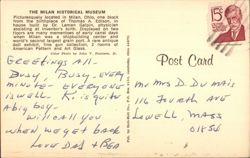 THE MILAN HISTORICAL MUSEUM
Picturesquely located in Milan, Ohio, one block
from the birthplace of Thomas A. Edison, in
house built by Dr. Lehman Galpin, physician
assisting at inventor's birth. Displayed on two
floors are many mementoes of early canal days
when Milan was a shipbuilding center and
world's second largest grain port. A rare antique
doll exhibit, fine gun collection, 2 rooms of
American Pattern and Art Glass.
Color Photo by John T.
15c
Post Card
Greetings All-
Busy, Busy, every
minute- Everyone
is well. K. is quite
a big boy-
will call you
when we get back
Love Dad + Bea
Mr Mrs D Dumais
116 Fourth Ave
Lowell, Mass
01854